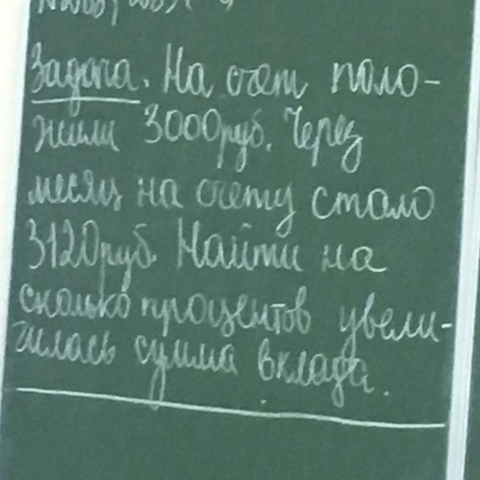 Задача. На счет поло-
жили 3000руб. Через
месяц на счету стало
3120руб. Найти на
сколько процентов увели-
чилась сумма вклада.